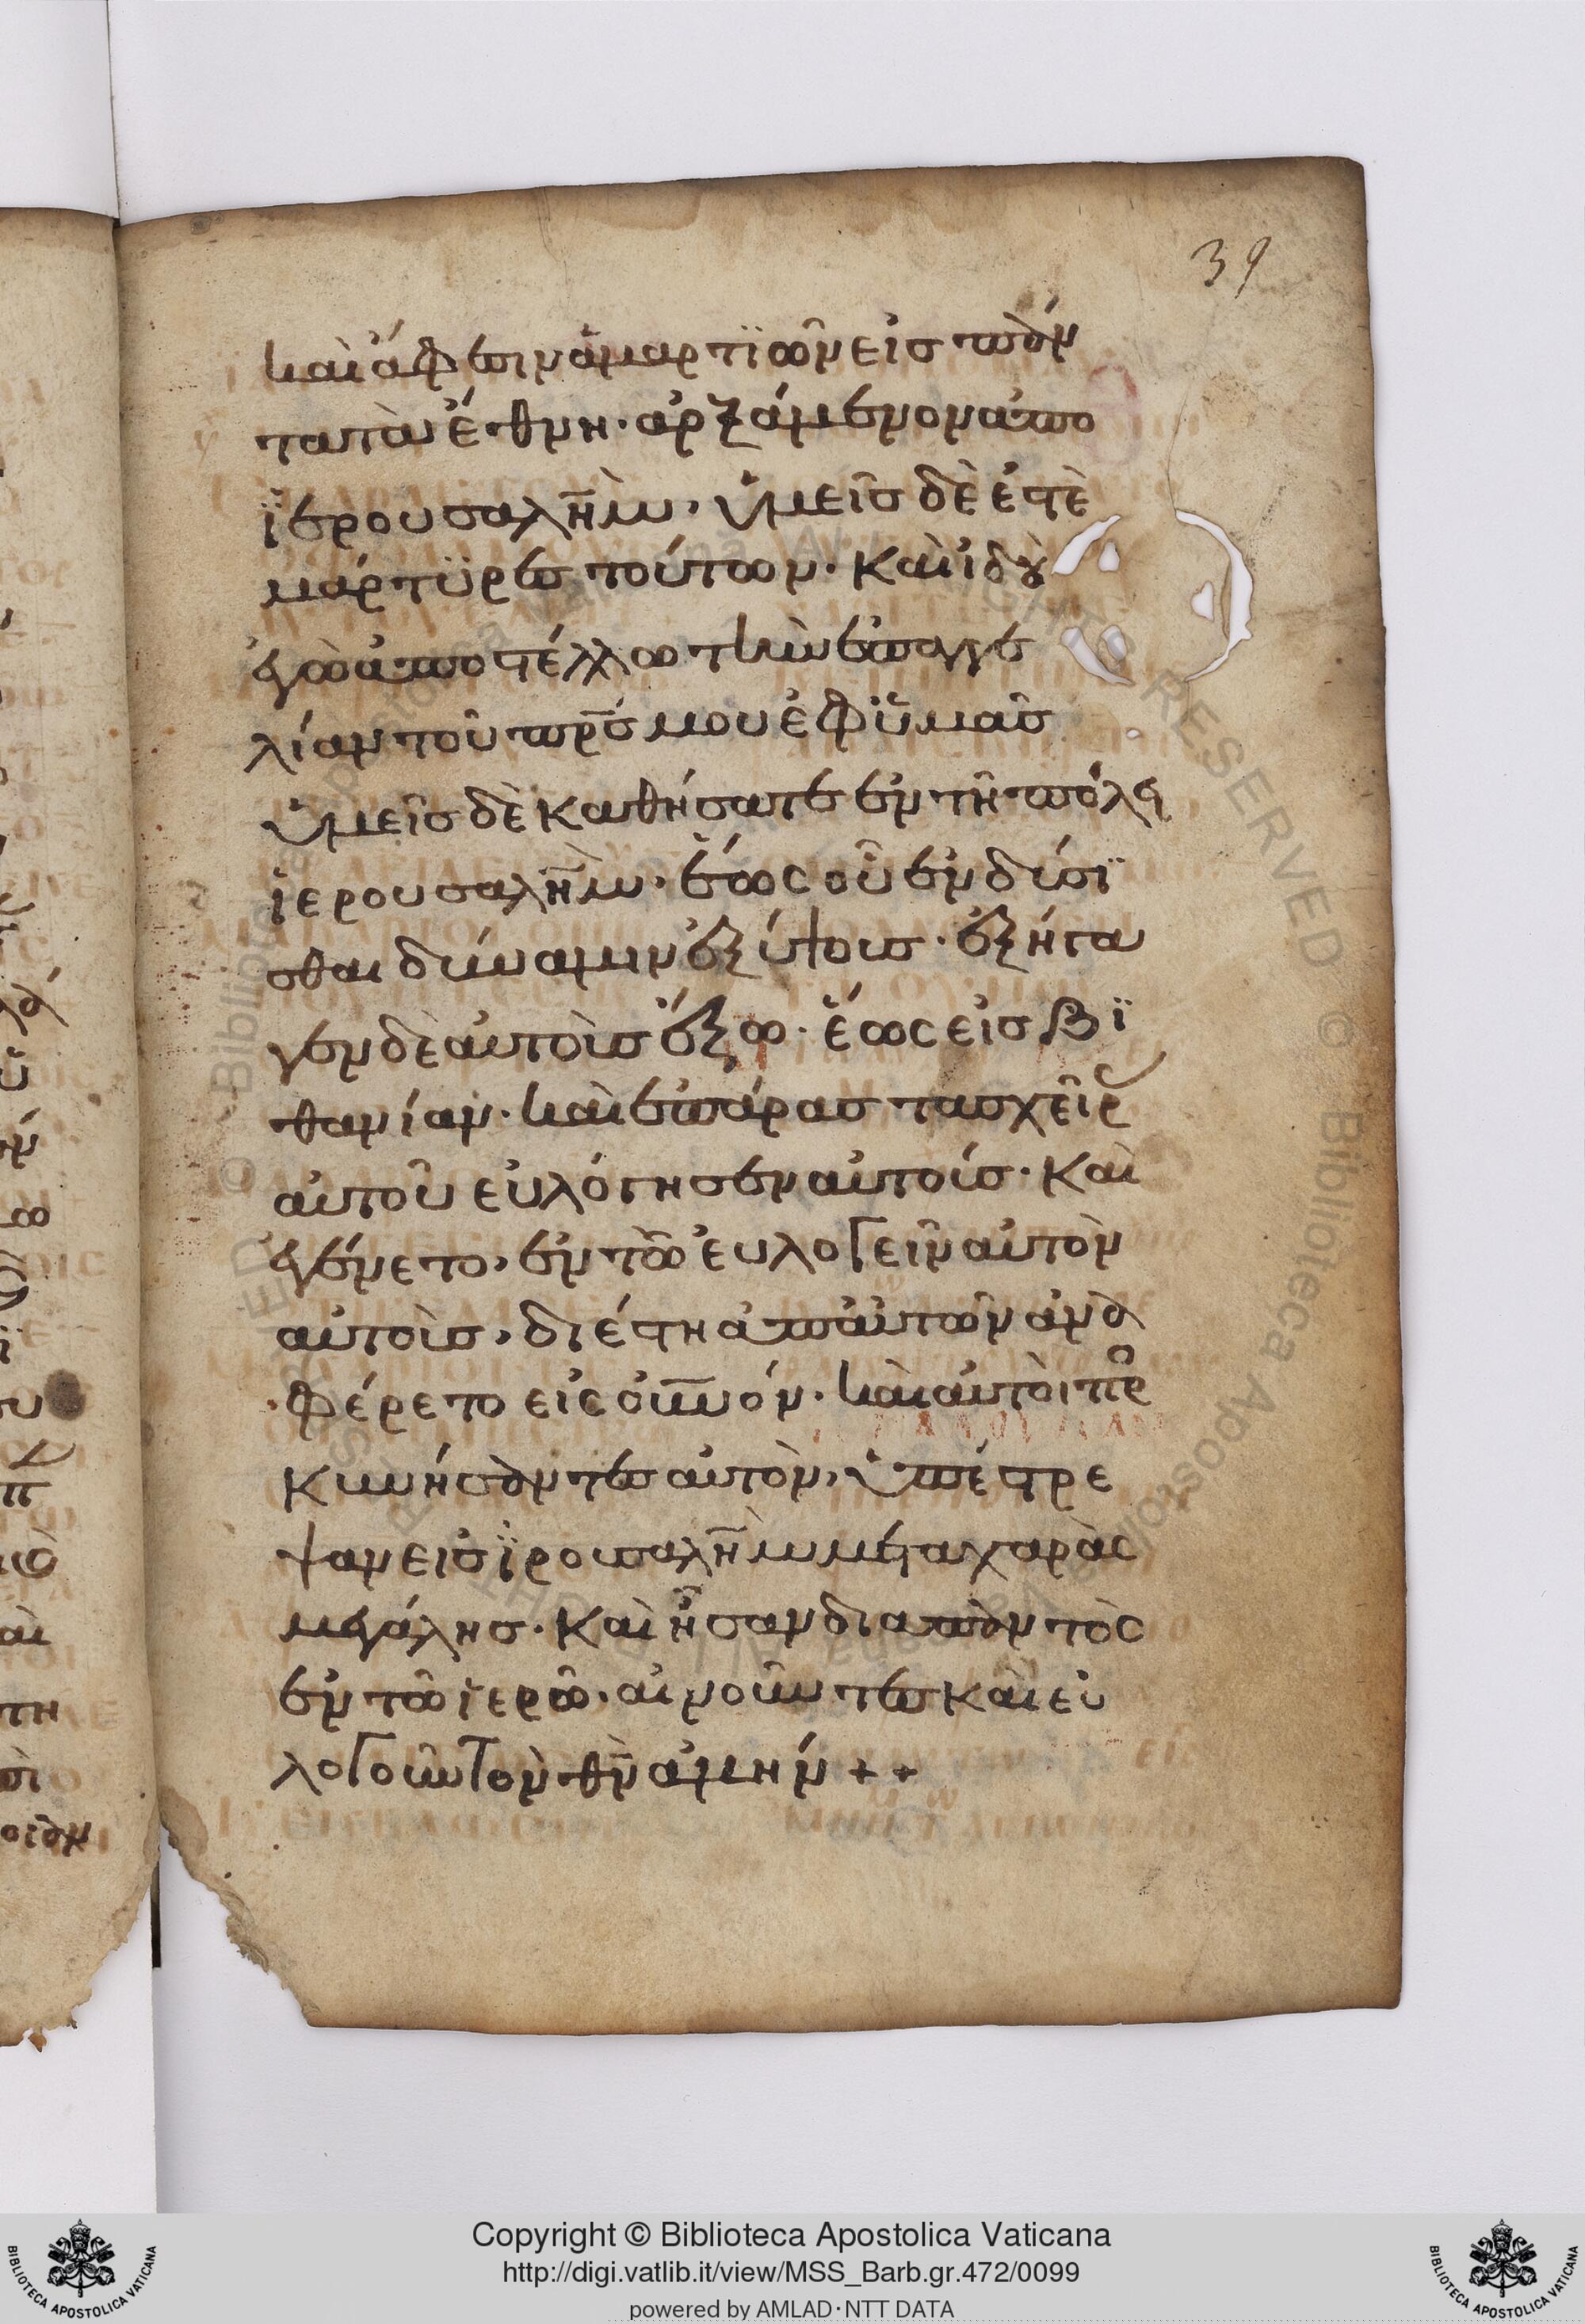 39
καὶ ἄφεσιν ἁμαρτϊῶν εἰς πάν
τα τὰ ἔθνη· ἀρξάμενον ἀπο
ϊερουσαλῆμ, ὑμεῖς δὲ ἐστὲ
μάρτϋρες τούτων. καὶ ἰδοὺ
ἐγὼ ἀποστέλλω τὴν ἐπαγγε
λίαν τοῦ πρ̅ς μου ἐφ ϋμᾶς
ὑμεῖς δὲ καθήσατε ἐν τῆ πόλει
ἱερουσαλὴμ· ἕως οὗ ἐνδύσϊ
σθαι δύναμιν ἐξ ύψους· ἐξήγα
γεν δὲ αὐτοὺς ἔξω· ἕως εἰς βϊ
θανίαν· καὶ ἐπάρας τας χεῖρ
αὐτοῦ εὐλόγησεν αὐτούς· καὶ
ἐγένετο, ἐν τῶ εὐλογεῖν αὐτὸν
αὐτοὺς, διέστη ἀπ αὐτῶν ἀνε
φέρετο εἰς οὐ̅νόν· καὶ αὐτοὶ πρ
κυνήσαντες αὐτὸν, ὑπέστρε
ψαν εἰς ϊρουσαλῆμ μετα χαρὰς
μεγάλης· καὶ ἦσαν διαπαντὸς
ἐν τῶ ἱερῶ· αἰνοῦντες καὶ εὐ
λογοῦντον θ̅ν ἀμήν ++
Copyright © Biblioteca Apostolica Vaticana
http://digi.vatlib.it/view/MSS_Barb.gr.472/0099
powered by AMLAD·NTT DATA